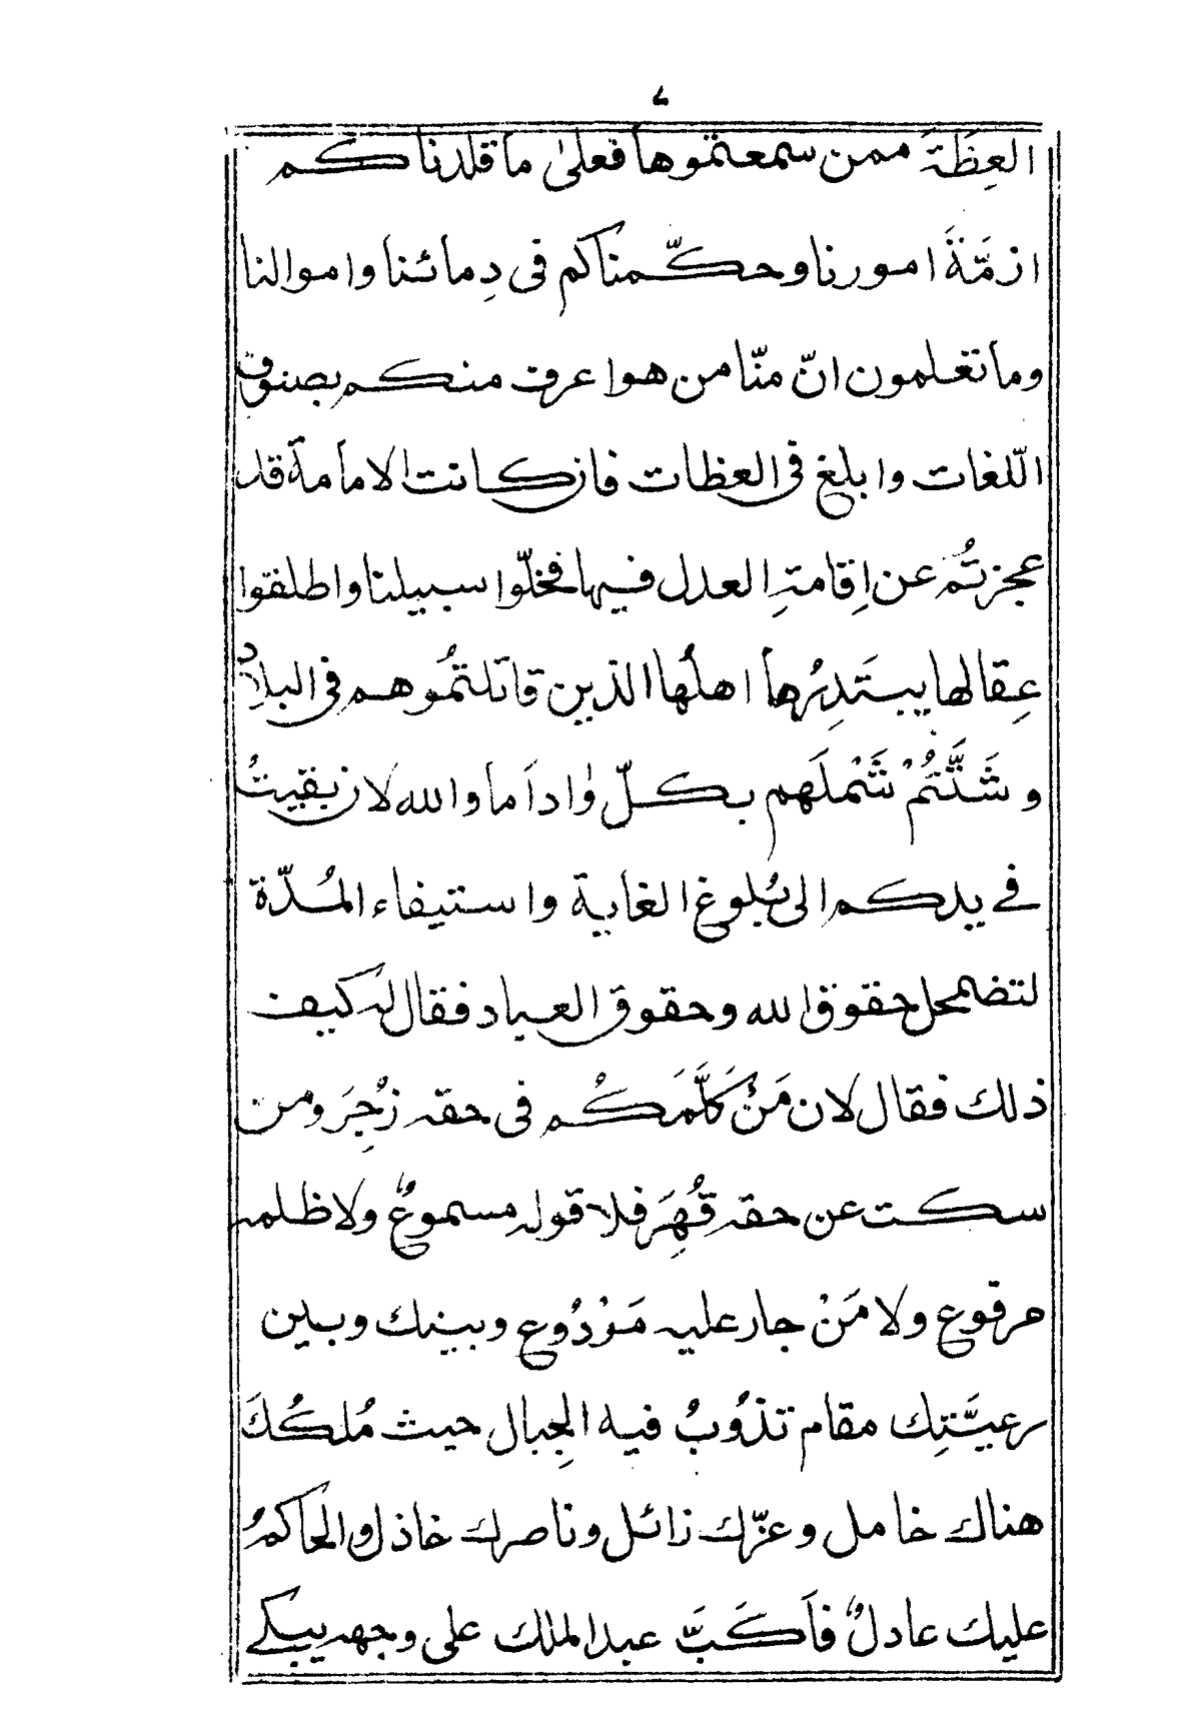 ٧
العِظَةَ ممن سمعتموها فعلىٰ ما قلدناكم
ازمَّةَ امورنا وحكّمناكم فى دِمائنا واموالنا
وما تعلمون انّ منّا من هو اعرف منكم بصنوف
اللغات وابلغ فى العظات فان كانت الامامة قد
عجزتُم عن اِقامةِ العدل فيها فخلّوا سبيلنا واطلقوا
عِقالها يبتَدِرُها اهلُها الذين قاتلتمُوهم فى البلاد
وشَتَّتُّمْ شَمْلَهم بكلّ وٰاد اَما والله لان بقيتْ
فے يدكم الى بُلوغ الغاية واستيفاء المُدّة
لتضمحل حقوق الله وحقوق العباد فقال له كيف
ذلك فقال لان مَنْ كَلَّمَكُم فى حقه زُجِرَ ومن
سكت عن حقه قُهِرَ فلا قوله مسموعٌ ولا ظلمه
مرفوع ولا مَنْ جار عليه مَرْدُوع وبينك وبين
رعيَّتِك مقام تذوُبُ فيه الجِبال حيث مُلكُكَ
هناك خامل وعزّك زائل وناصرك خاذل والحاكمُ
عليك عادلٌ فاَكَبَّ عبد الملك على وجهه يبكے